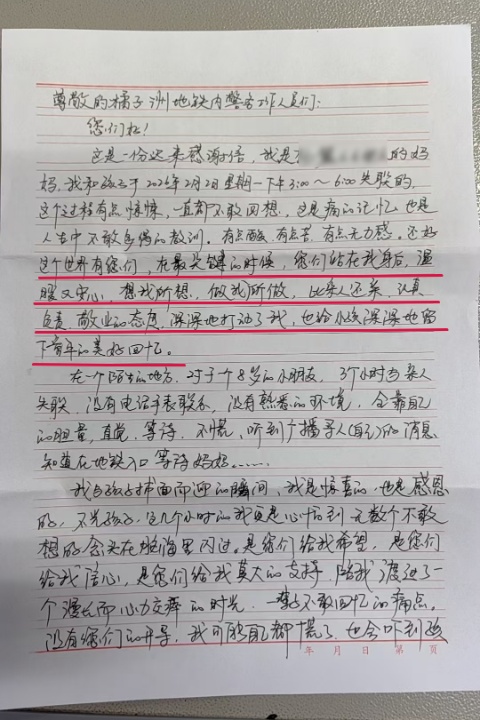 尊敬的橘子洲地铁内警务工作人员们:
您们好!
这是一份迟来感谢信,我是 的妈
妈,我和孩子于2026年2月2日星期一下午3:00～6:00失联的,
这个过程有点惊悚,一直都不敢回想,这是痛的记忆,也是
人生中不敢多得的教训。有点酸,有点苦,有点无力感。还好
这个世界有您们,在最关键的时候,您们站在我身后,温
暖又安心,想我所想,做我所做,比亲人还亲,认真
负责、敬业的态度,深深地打动了我,也给小孩深深地留
下童年的美好回忆。
在一个陌生的地方,对于一个8岁的小朋友,3个小时与亲人
失联,没有电话手表联系,没有熟悉的环境,全靠自己
的胆量,直觉,等待,不慌、听到广播寻人(自己)的消息
知道在地铁入口等待妈妈......
我与孩子扑面而迎的瞬间,我是惊喜的,也是感恩
的,不光孩子,这几个小时的我更是心如刀割 无数个不敢
想的念头在脑海里闪过。是您们给我希望,是您们
给我信心,是您们给我莫大的支持,陪我渡过了一
个漫长而心力交瘁的时光,一个不敢回忆的痛点。
没有您们的开导,我可能自己都慌了,也会吓到孩
年 月 日 第 页